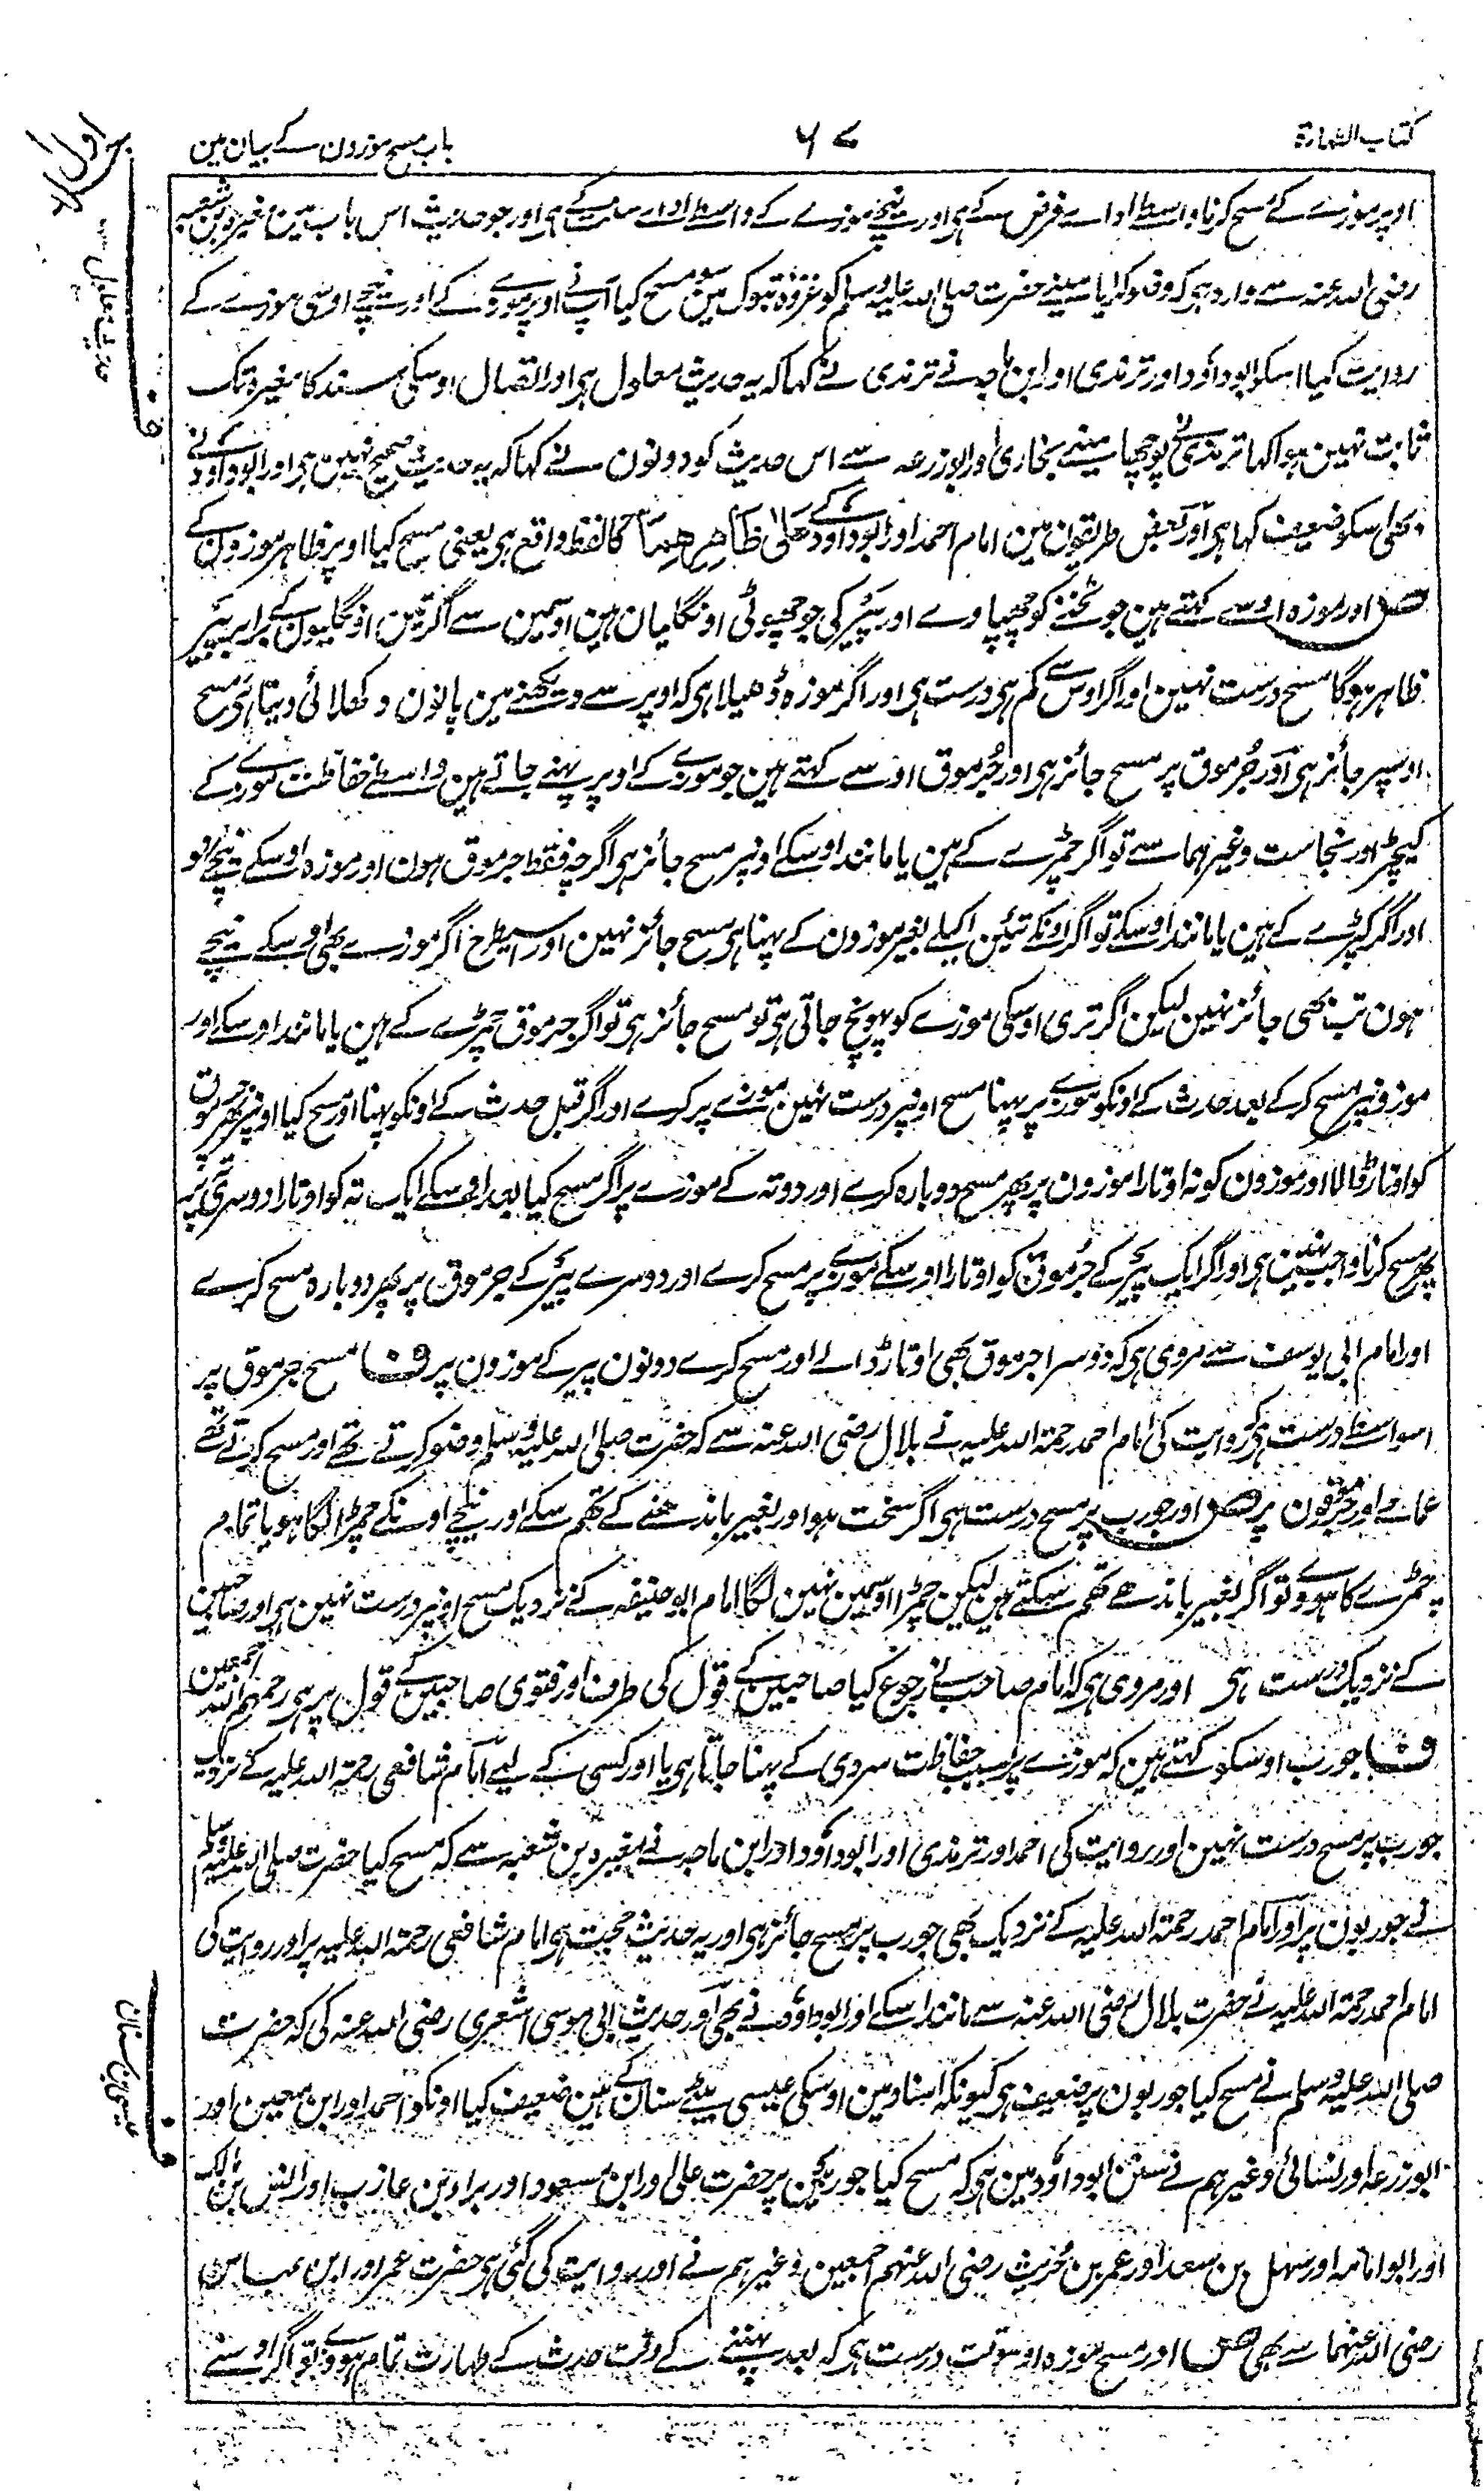 کتاب الطہارۃ
۶۷
باب مسح موزون کے بیان مین
اوپر موزے کے مسح کرنا واسطے ادائے فرض کے ہی اور نیچے موزے کے واسطے ادائے سنت کے ہی اور جو حدیث اس باب مین مغیرہ بن شعبہ
رضی اللہ عنہ سے وارد ہی کہ وضو کرایا مینے حضرت صلی اللہ علیہ وسلم کو غزوۂ تبوک مین سو مسح کیا آپ نے اوپر موزے کے اور نیچے اوسی موزے کے
روایت کیا اسکو ابوداؤد اور ترمذی اور ابن ماجہ نے ترمذی نے کہا کہ یہ حدیث معلول ہی اور اتصال اوسکی سند کا مغیرہ تک
ثابت نہین ہوا کہا ترمذی نے پوچھا مینے بخاری اور ابوزرعہ سے اس حدیث کو دونون نے کہا کہ یہ حدیث صحیح نہین ہی اور ابوداؤد نے
بھی اسکو ضعیف کہا ہی اور بعض طریقون مین امام احمد اور ابوداؤد کے عَلیٰ ظَاهِرِهِمَا کا لفظ واقع ہی یعنی مسح کیا اوپر ظاہر موزون کے
ص اور موزہ اوسے کہتے ہین جو ٹخنے کو چھپاوے اور پَیر کی جو چھوٹی اونگلیان ہین اوسمین سے اگر تین اونگلیون کے برابر پیر
ظاہر ہوگا مسح درست نہین اور اگر اوس سے کم ہی درست ہی اور اگر موزہ ڈھیلا ہی کہ اوپر سے دیکھنے مین پانون دکھلائی دیتا ہی مسح
اوسپر جائز ہی اور جُرموق پر مسح جائز ہی اور جُرموق اوسے کہتے ہین جو موزے کے اوپر پہنے جاتے ہین واسطے حفاظت موزے کے
کیچڑ اور نجاست وغیرہما سے تو اگر چمڑے کے ہین یا مانند اوسکے اونپر مسح جائز ہی اگرچہ فقط جرموق ہون اور موزہ اوسکے نیچے نہو
اور اگر کپڑے کے ہین یا مانند اوسکے تو اگر اونکے تئین اکیلے بغیر موزون کے پہنا ہی مسح جائز نہین اور اسیطرح اگر موزے بھی اوسکے نیچے
ہون تب بھی جائز نہین لیکن اگر تری اوسکی موزے کو پہونچ جاتی ہی تو مسح جائز ہی تو اگر جرموق چمڑے کے ہین یا مانند اوسکے اور
موزونپر مسح کرکے بعد حدث کے اونکو موزے پر پہنا مسح اونپر درست نہین موزے پر کرے اور اگر قبل حدث کے اونکو پہنا اور مسح کیا اونپر پھر جرموق
کو اوتار ڈالا اور موزون کو نہ اوتارا موزون پر پھر مسح دوبارہ کرے اور دو تہ کے موزے پر اگر مسح کیا بعد اوسکے ایک تہ کو اوتارا دوسری تہ پر
پھر مسح کرنا واجب نہین ہی اور اگر ایک پَیر کے جُرموق کو اوتارا اوسکے موزے پر مسح کرے اور دوسرے پَیر کے جرموق پر پھر دوبارہ مسح کرے
اور امام ابی یوسف سے مروی ہی کہ دوسرا جرموق بھی اوتار ڈالے اور مسح کرے دونون پیر کے موزون پر ف مسح جرموق پر
اسواسطے درست ہی کہ روایت کی امام احمد رحمۃ اللہ علیہ نے بلال رضی اللہ عنہ سے کہ حضرت صلی اللہ علیہ وسلم وضو کرتے تھے اور مسح کرتے تھے
عمامے اور جرموقون پر ص اور جورب پر مسح درست ہی اگر سخت ہو اور بغیر باندھنے کے تھم سکے اور نیچے اونکے چمڑا لگا ہو یا تمام
چمڑے کا ہووے تو اگر بغیر باندھے تھم سکتے ہین لیکن چمڑا اوسمین نہین لگا امام ابوحنیفہ کے نزدیک مسح اونپر درست نہین ہی اور صاحبین
کے نزدیک درست ہی اور مروی ہی کہ امام صاحب نے رجوع کیا صاحبین کے قول کی طرف اور فتوی صاحبین کے قول پر ہی رحمہم اللہ اجمعین
ف جورب اوسکو کہتے ہین کہ موزے پر بسبب حفاظت سردی کے پہنا جاتا ہی یا اور کسی کے لیے امام شافعی رحمۃ اللہ علیہ کے نزدیک
جورب پر مسح درست نہین اور روایت کی احمد اور ترمذی اور ابوداؤد اور ابن ماجہ نے مغیرہ بن شعبہ سے کہ مسح کیا حضرت صلی اللہ علیہ وسلم
نے جوربون پر اور امام احمد رحمۃ اللہ علیہ کے نزدیک بھی جورب پر مسح جائز ہی اور یہ حدیث حجت ہی امام شافعی رحمۃ اللہ علیہ پر اور روایت کی
امام احمد رحمۃ اللہ علیہ نے حضرت بلال رضی اللہ عنہ سے مانند اسکے اور ابوداؤد نے بھی اور حدیث ابی موسی اشعری رضی اللہ عنہ کی کہ حضرت
صلی اللہ علیہ وسلم نے مسح کیا جوربون پر ضعیف ہی کیونکہ اسناد مین اوسکی عیسی بیٹے سنان کے ہین ضعیف کیا اونکو احمد اور ابن معین اور
ابوزرعہ اور نسائی وغیرہم نے سنن ابوداؤد مین ہی کہ مسح کیا جوربین پر حضرت علی اور ابن مسعود اور براء بن عازب اور انس بن مالک
اور ابو امامہ اور سہل بن سعد اور عمر بن حُریث رضی اللہ عنہم اجمعین وغیرہم نے اور روایت کی گئی ہی حضرت عمر اور ابن عباس
رضی اللہ عنہما سے بھی ص اور مسح موزہ اوسوقت درست ہی کہ بعد پہننے کے وقت حدث کے طہارت تمام ہووے تو اگر اوسنے
ف
حدیث معلول
ف
عیسی بن سنان